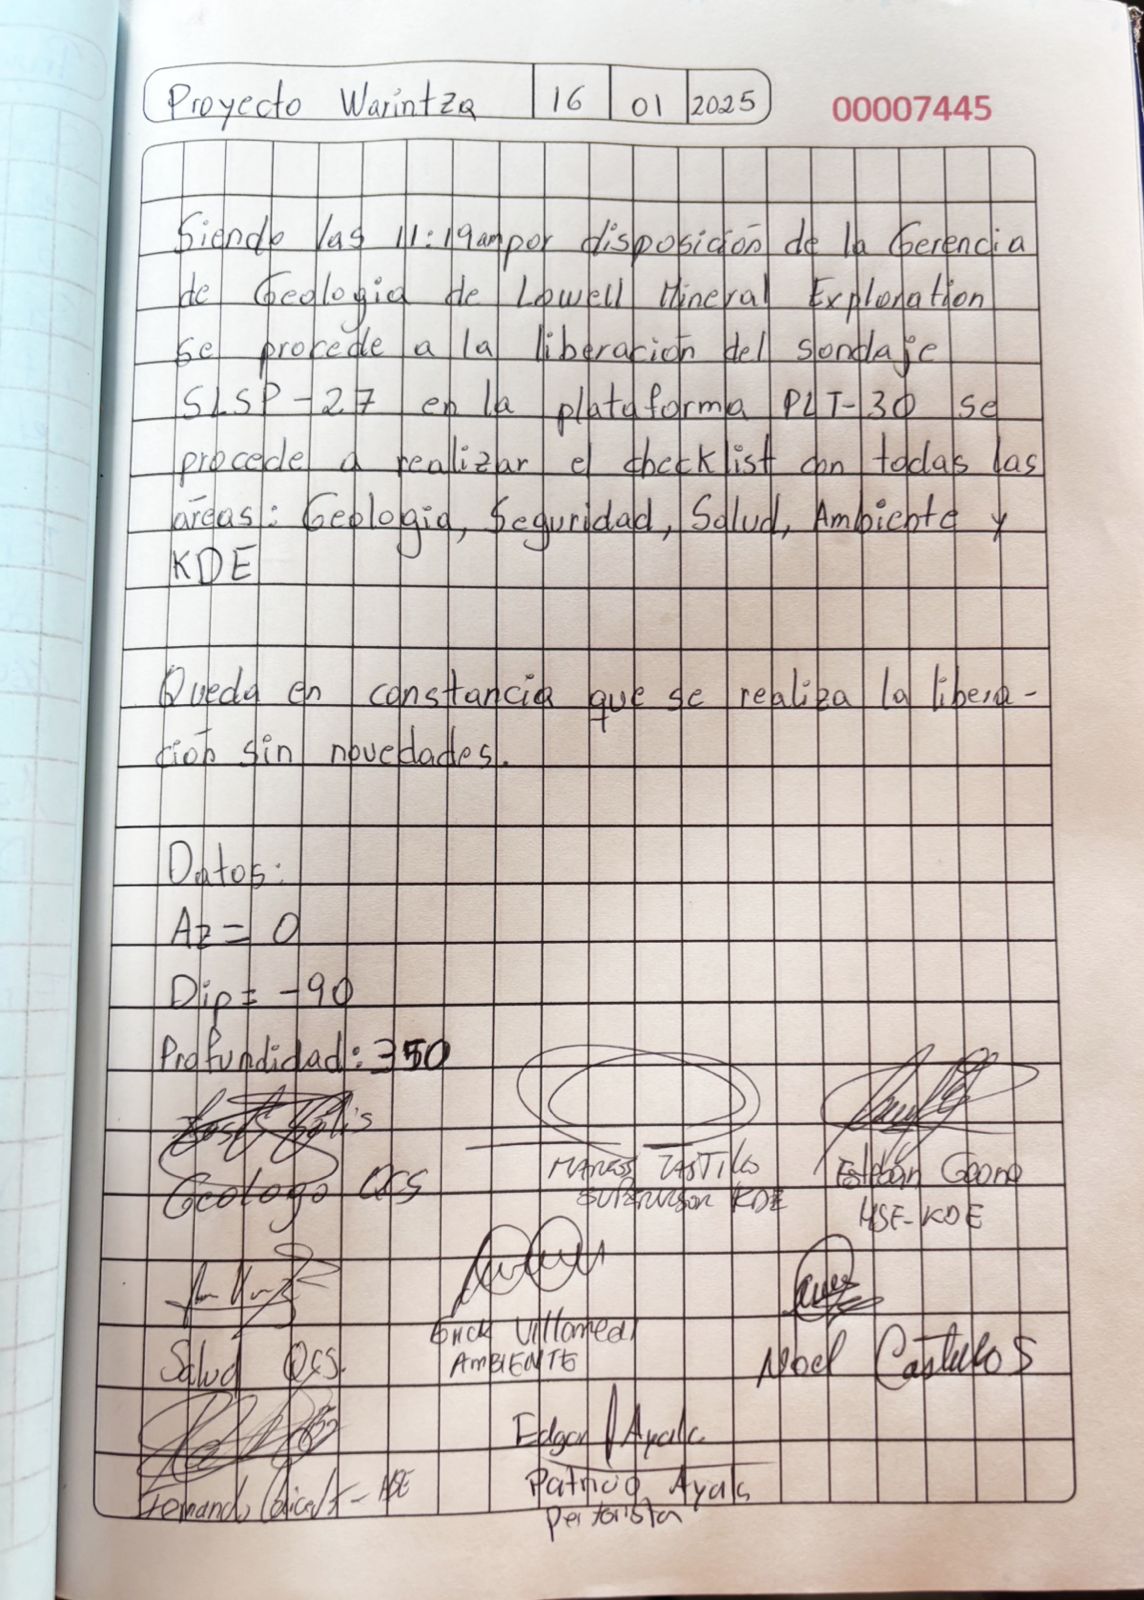 Proyecto Warintza 16 01 2025 00007445
Siendo las 11:19am por disposición de la Gerencia
de Geologia de Lowell Mineral Exploration
se procede a la liberación del sondaje
SLSP-27 en la plataforma PLT-30 se
procede a realizar el checklist con todas las
áreas: Geologia, Seguridad, Salud, Ambiente y
KDE
Queda en constancia que se realiza la libera-
ción sin novedades.
Datos:
Az = 0
Dip = -90
Profundidad: 350
Geologo Qcs
SUPERVISOR KDE
Esteban
HSE-KDE
Salud Qcs.
Erick
AMBIENTE
Noel Castillo S
Edgar Ayala
Patricio Ayala
HSE